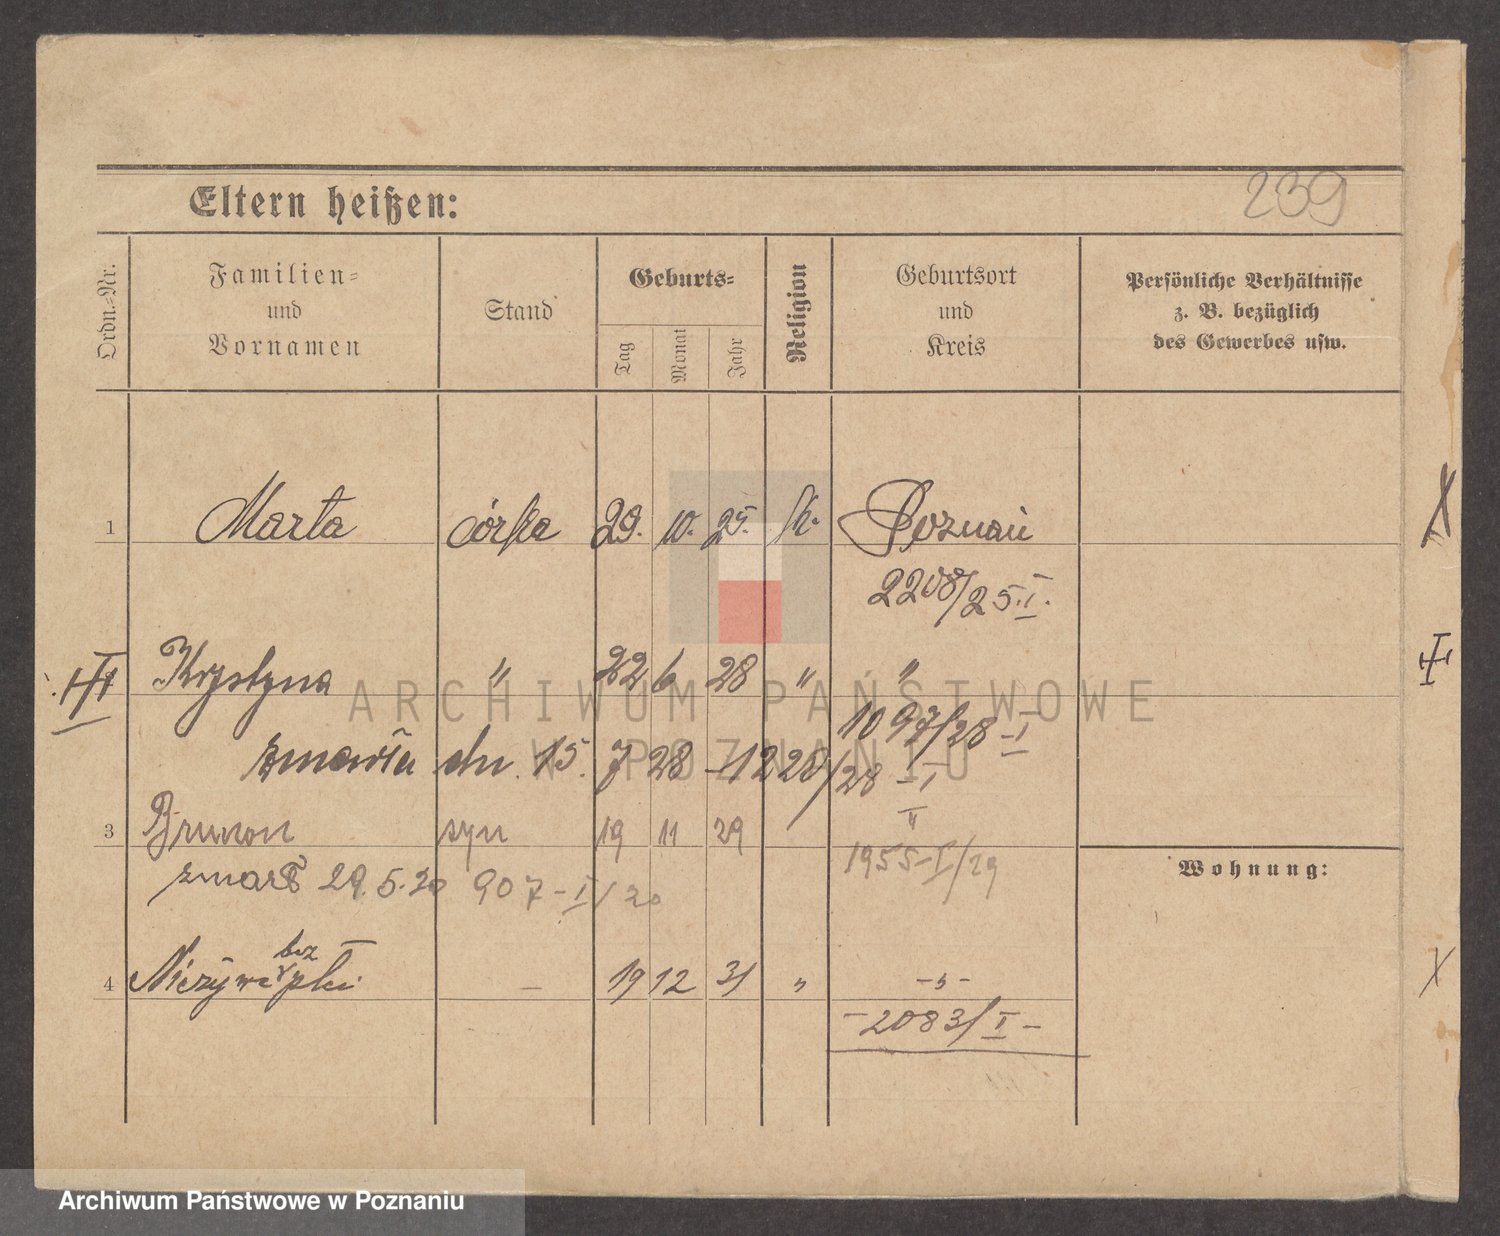 239
Eltern heißen:
Ordn.-Nr.
Familien-
und
Vornamen
Stand
Geburts-
Tag
Monat
Jahr
Religion
Geburtsort
und
Kreis
Persönliche Verhältnisse
z. B. bezüglich
des Gewerbes usw.
1 Marta córka 29. 10. 25. K. Poznań
2208/25.I.
Krystyna " 22 6 28 " "
1097/28-I
zmarła dn. 15. 7 28 -1228/28-I
3 Brunon syn 19 11 29 "
1955-I/29
zmarł 29.5.30 907-I/30
Wohnung:
bez
4 Nieżywe płci - 19 12 31 " -"-
-2083/I-
ARCHIWUM PAŃSTWOWE
W POZNANIU
Archiwum Państwowe w Poznaniu